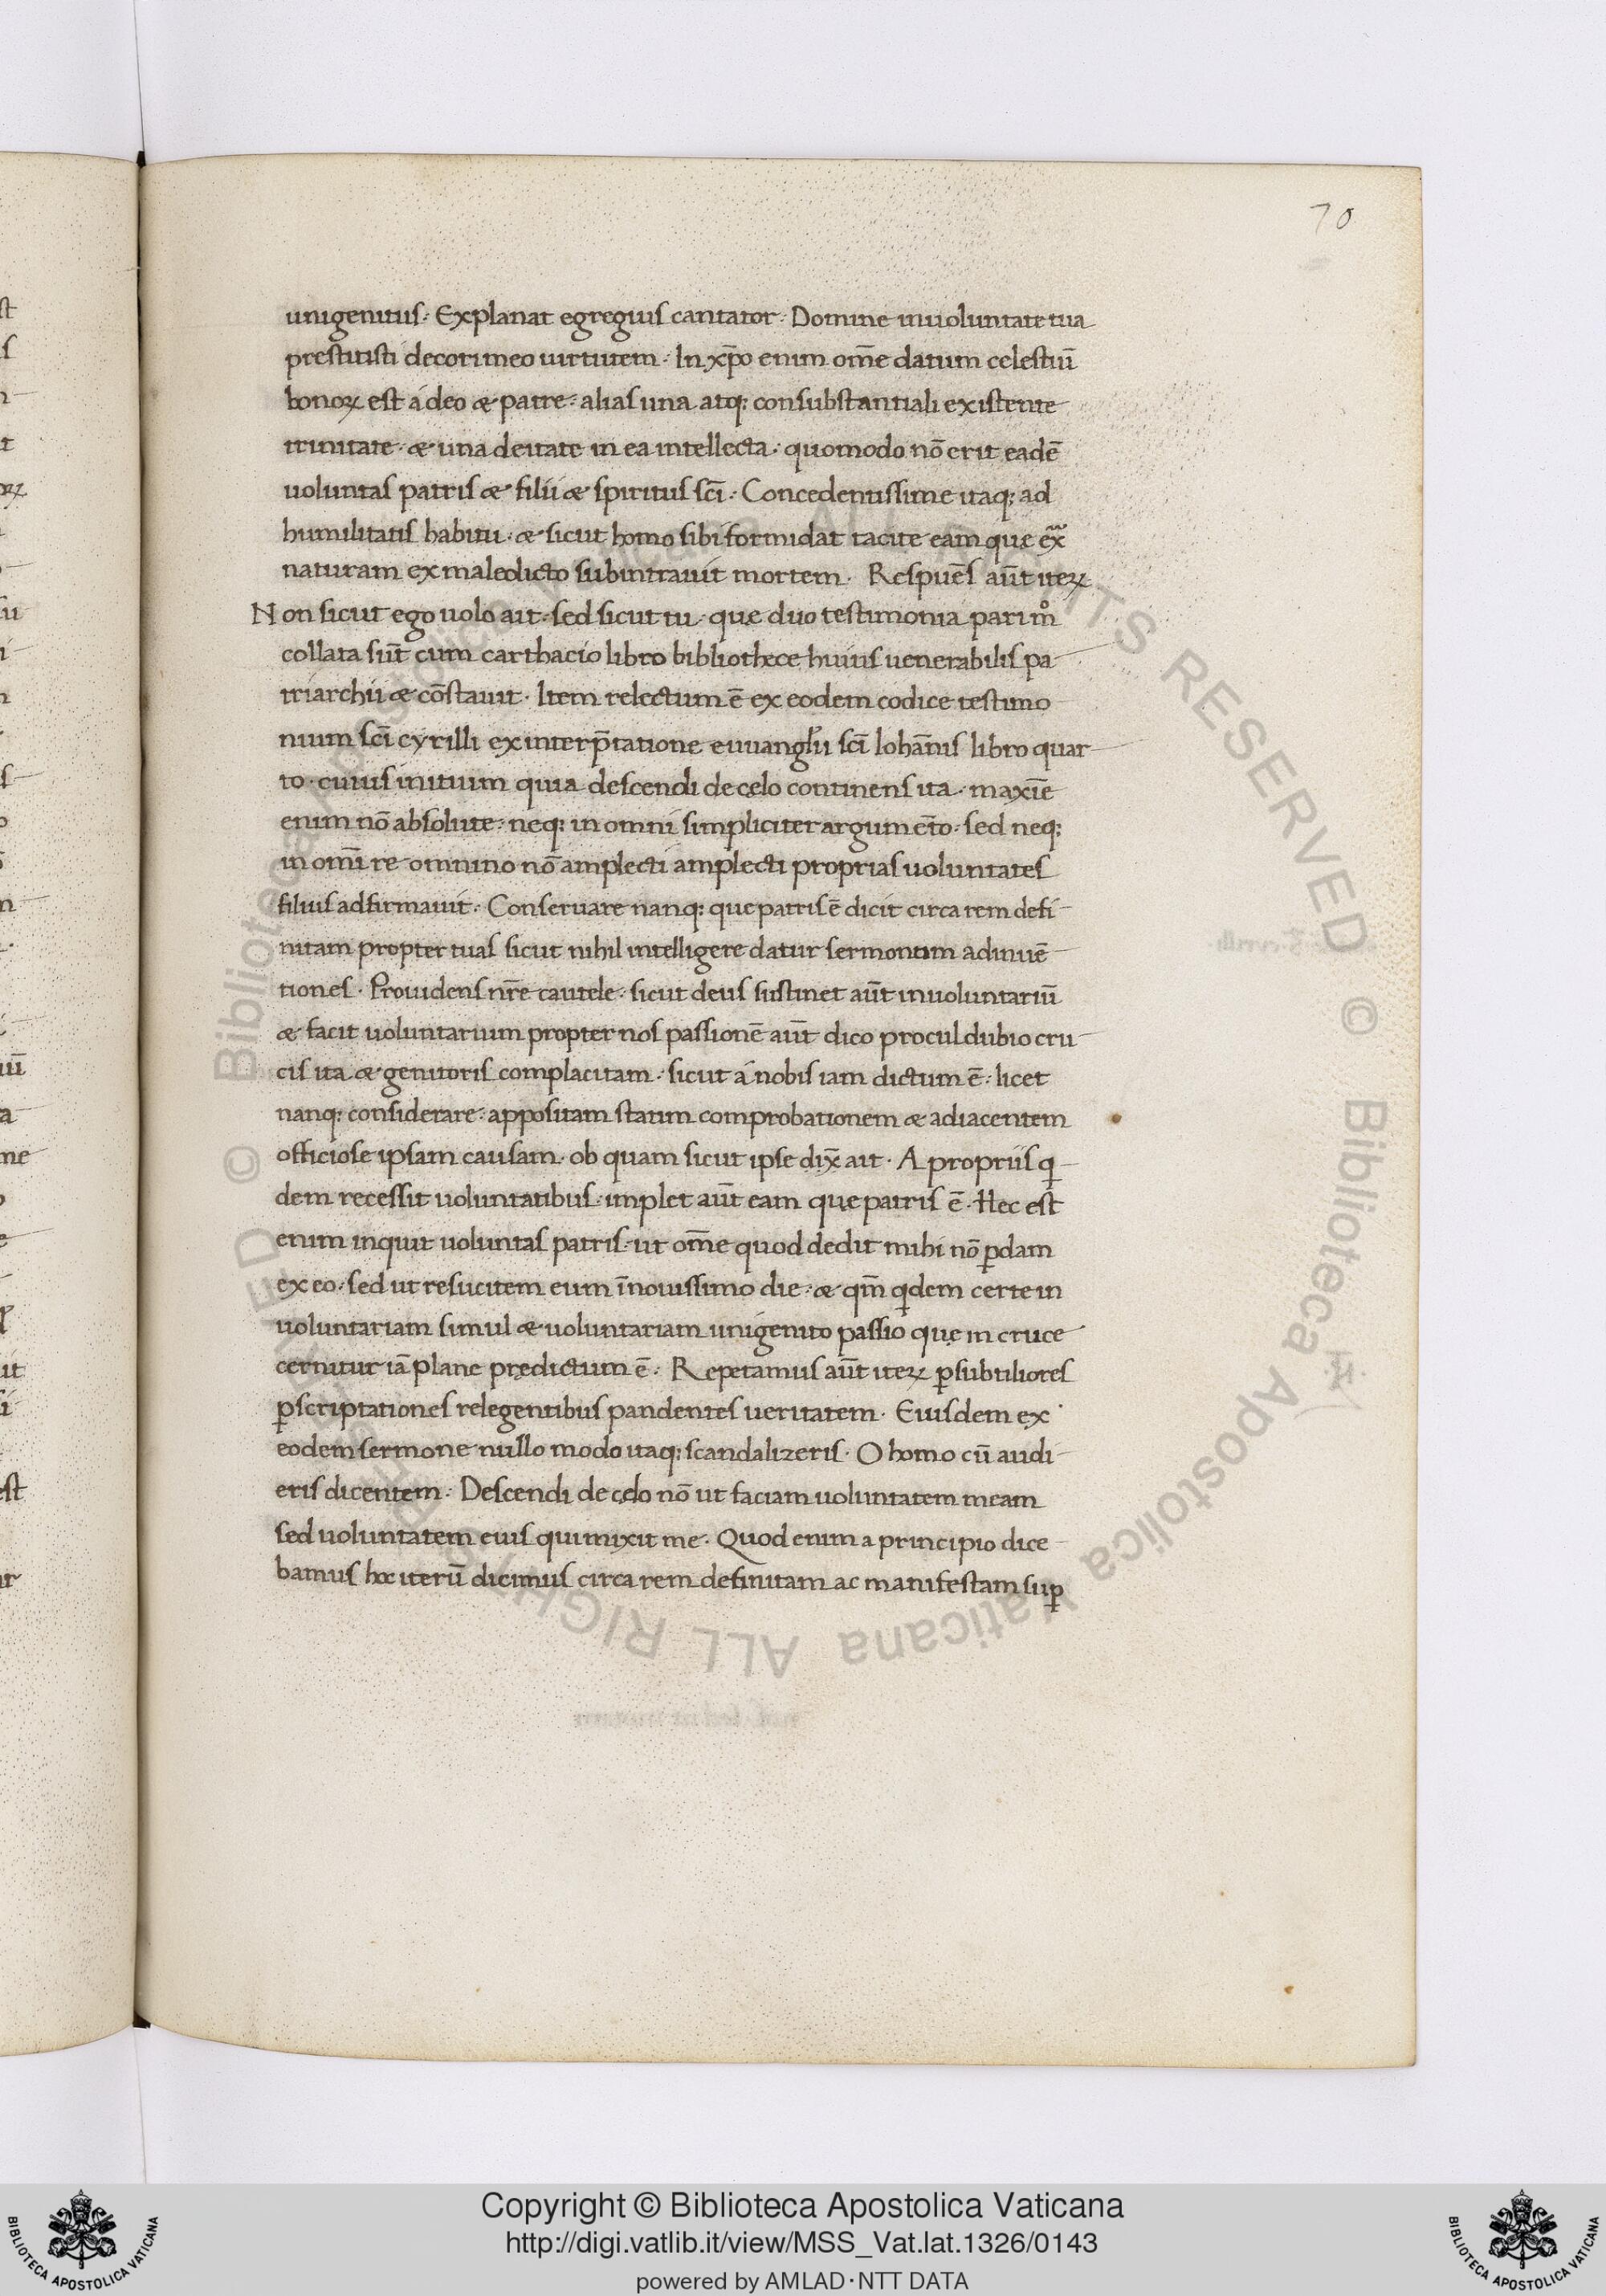 70
unigenitus. Explanat egregius cantator. Domine in uoluntate tua
prestitisti decori meo uirtutem. In xp̄o enim om̄e datum celestiū
bonoꝝ est á deo & patre. alias una atqꝫ consubstantiali existente
trinitate. & una deitate in ea intellecta. quomodo nō erit eadē
uoluntas patris & filii & spiritus sc̄i. Concedentissime itaqꝫ ad
humilitatis habitu. & sicut homo sibi formidat tacite eam quę ex̄
naturam ex maledicto subintrauit mortem. Respuēs aūt iteꝝ
Non sicut ego uolo ait. sed sicut tu. quę duo testimonia pari mͦ
collata sūt cum carthacio libro bibliothece huius uenerabilis pa
triarchii & cōstauit. Item relectum ē ex eodem codice testimo
nium sc̄i cyrilli ex interp̄tatione euuanglii sc̄i Iohānis libro quar
to. cuius initium quia descendi de cęlo continens ita. maxīe
enim nō absolute. neqꝫ in omni simpliciter argumēto. sed neqꝫ
in om̄i re omnino nō amplecti amplecti proprias uoluntates
filius adfirmauit. Conseruare nanqꝫ que patris ē dicit circa rem defi
nitam propter tuas sicut nihil intelligere datur sermonum adinuē
tiones. Prouidens nr̄e cautele. sicut deus sustinet aūt inuoluntariū
& facit uoluntarium propter nos passionē aūt dico procul dubio cru
cis ita & genitoris complacitam. sicut á nobis iam dictum ē. licet
nanqꝫ considerare. appositam statim comprobationem & adiacentem
officiose ipsam causam. ob quam sicut ipse dix̄ ait. A propriis q
dem recessit uoluntatibus. implet aūt eam quę patris ē. Hec est
enim inquit uoluntas patris. ut om̄e quod dedit mihi nō ꝑdam
ex eo. sed ut resucitem eum ī nouissimo die. & qm̄ qdem certe in
uoluntariam simul & uoluntariam unigenito passio quę in cruce
cernitur iā plane prędictum ē. Repetamus aūt iteꝝ ꝑ subtiliores
ꝑscriptationes relegentibus pandentes ueritatem. Eiusdem ex
eodem sermone nullo modo itaqꝫ scandalizeris. O homo cū audi
eris dicentem. Descendi de cęlo nō ut faciam uoluntatem meam
sed uoluntatem eius qui mixit me. Quod enim a principio dice
bamus hoc iterū dicimus circa rem definitam ac manifestam suꝑ
Copyright © Biblioteca Apostolica Vaticana
http://digi.vatlib.it/view/MSS_Vat.lat.1326/0143
powered by AMLAD·NTT DATA